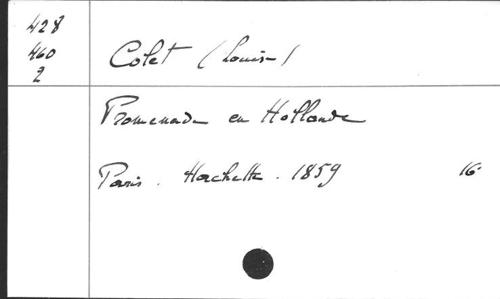 428
460
2
Colet (Louise)
Promenade en Hollande
Paris. Hachette. 1859 16°